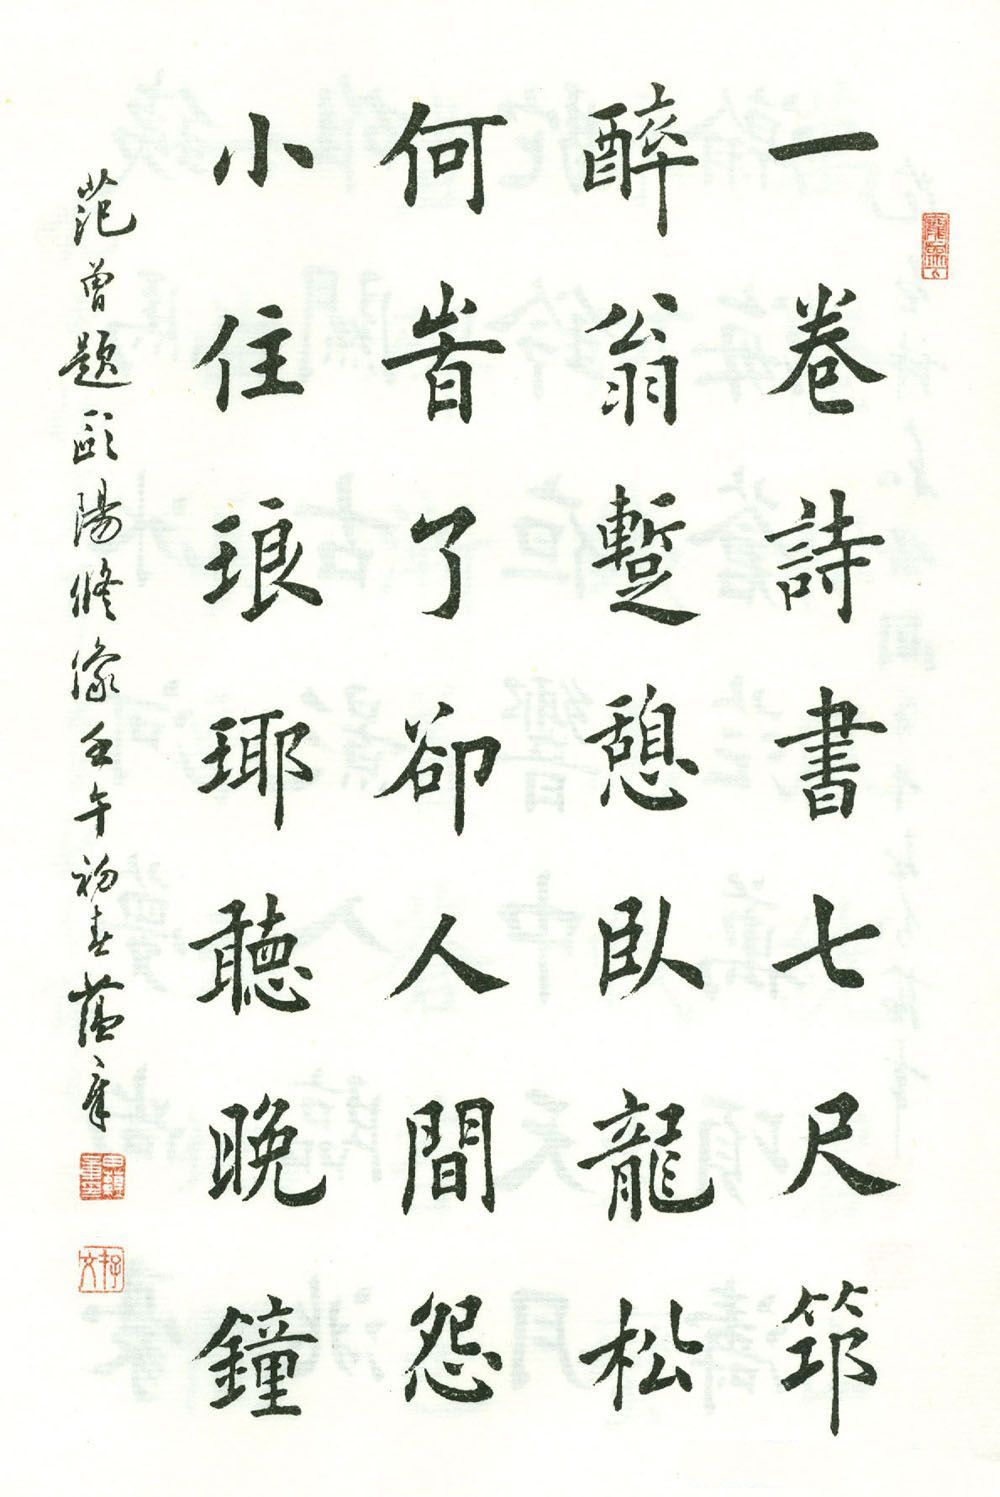 一卷詩書七尺筇
醉翁蹔憩臥龍松
何旹了卻人間怨
小住琅琊聽晚鐘
范曾題歐陽修像壬午初春蘊章